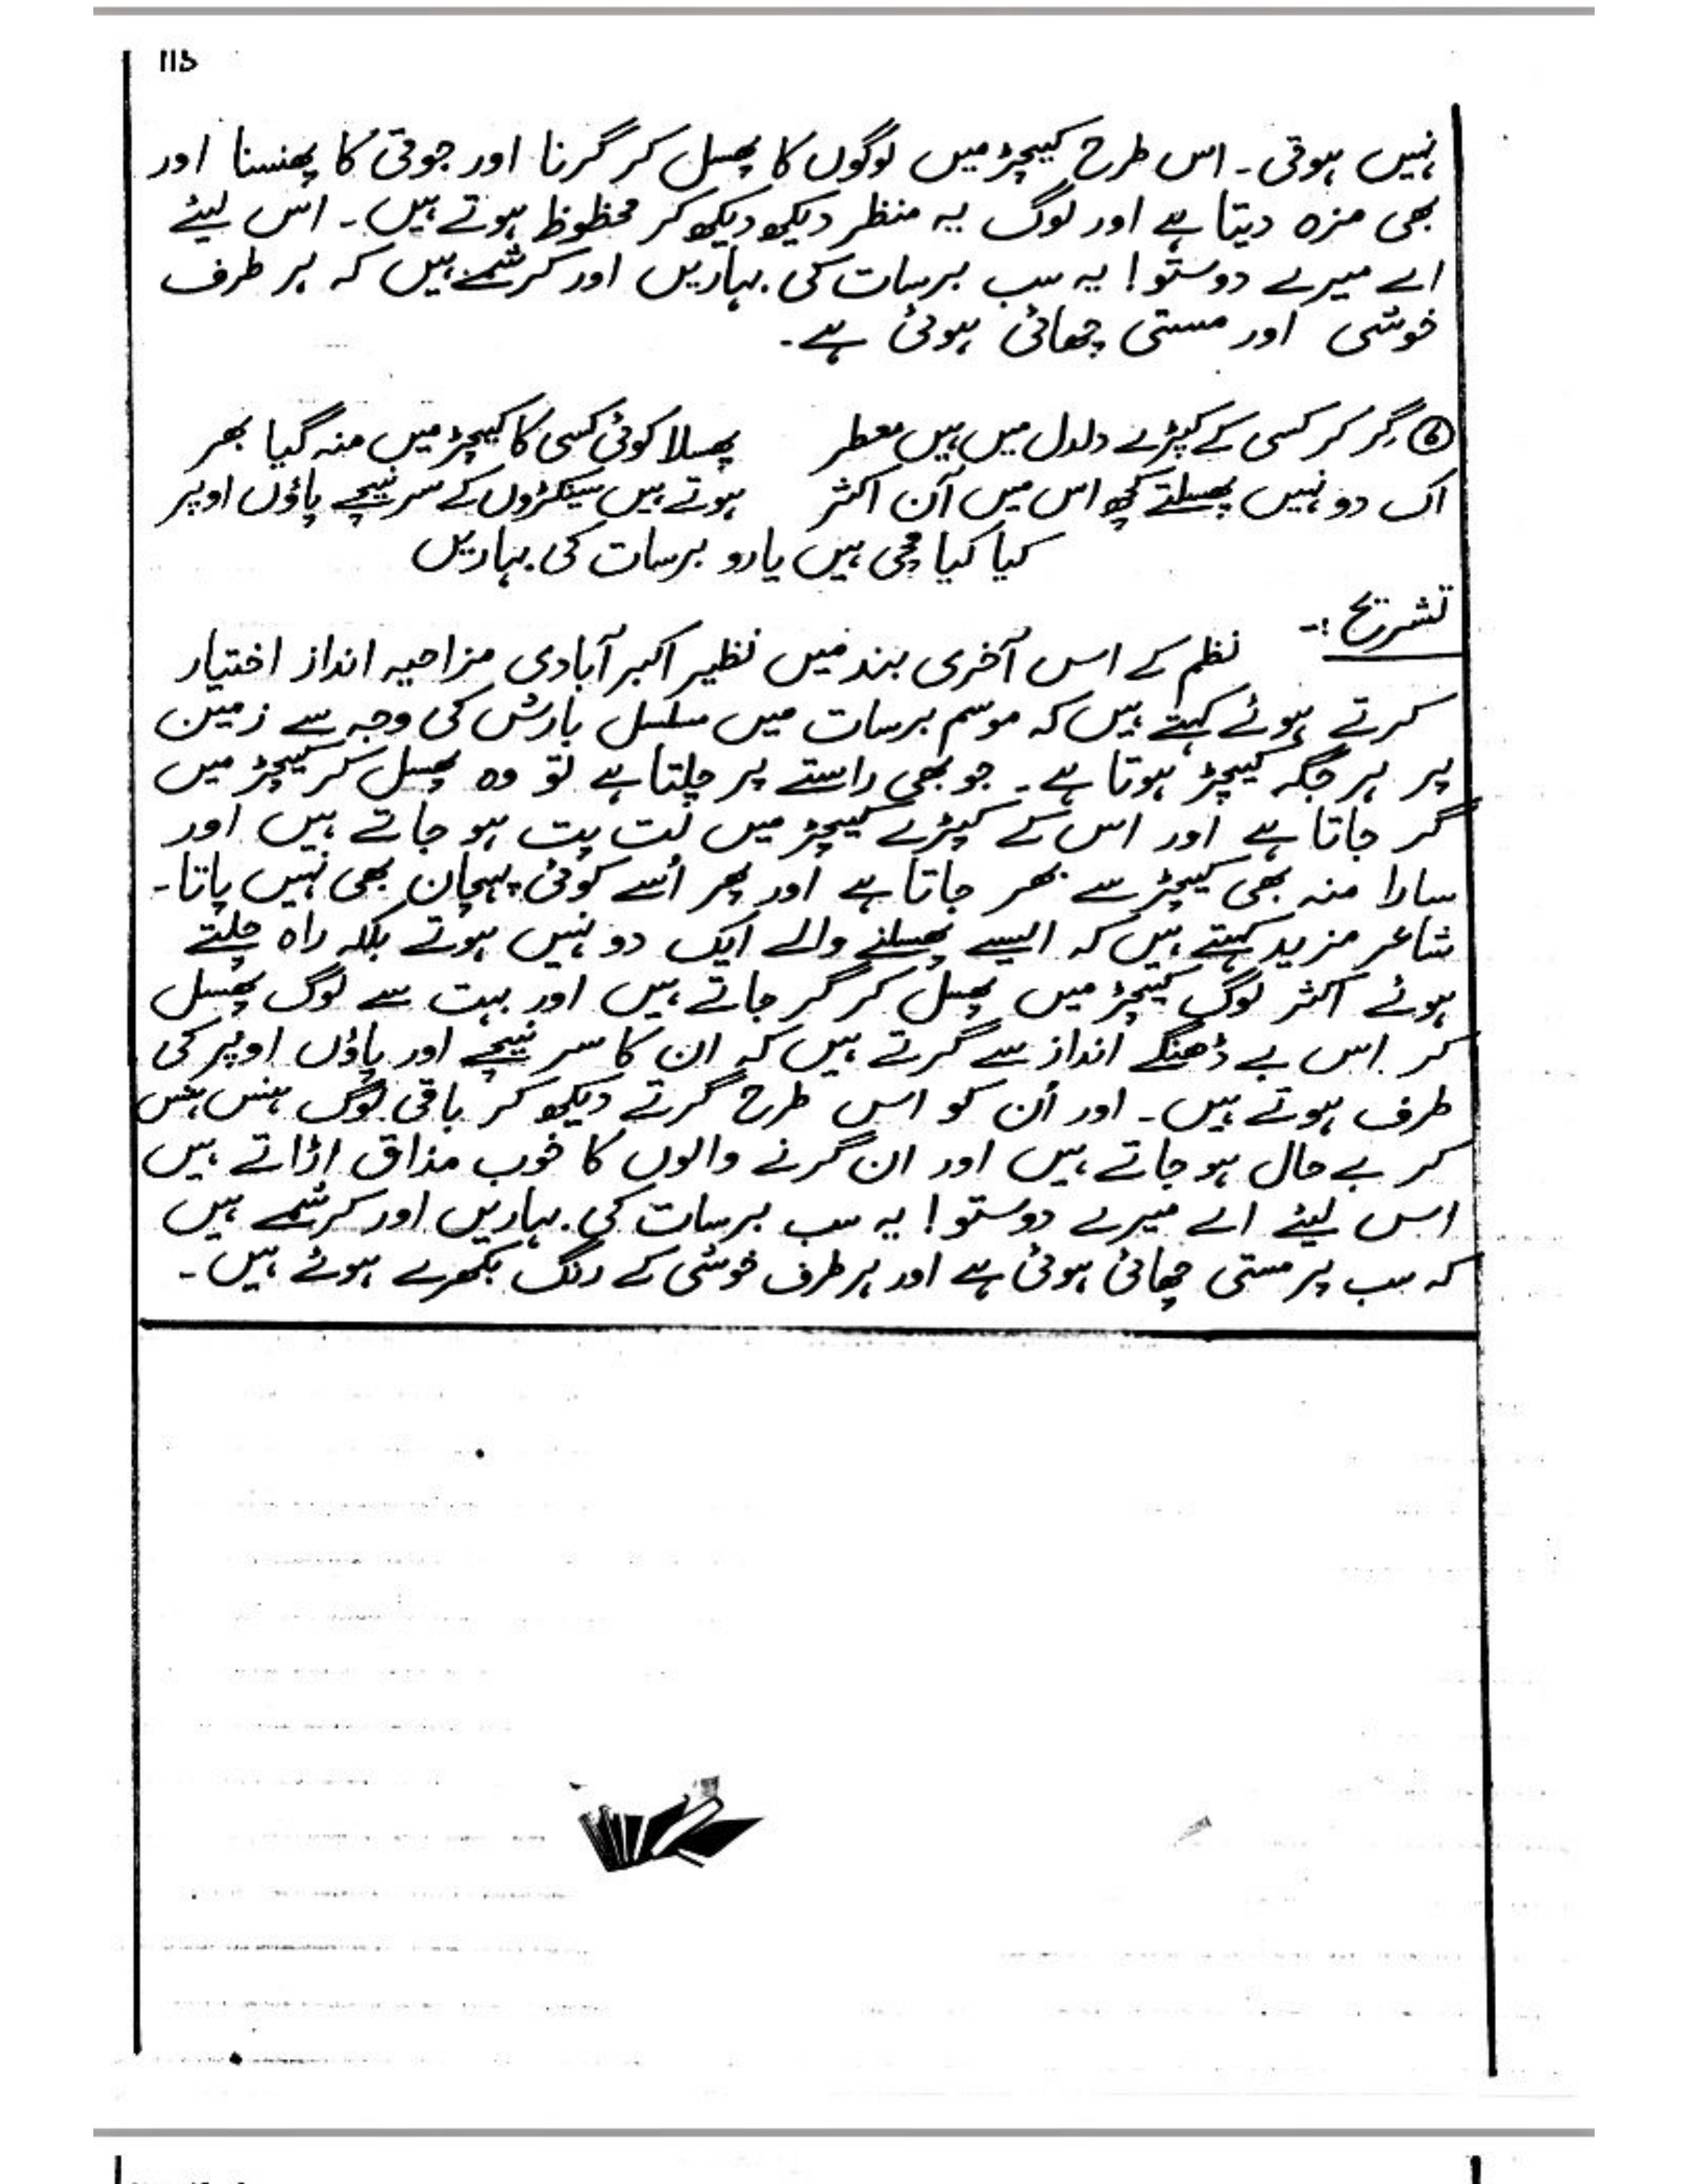 113
نہیں ہوتی۔ اس طرح کیچڑ میں لوگوں کا پھسل کر گرنا اور جوتی کا پھنسنا اور
بھی مزہ دیتا ہے اور لوگ یہ منظر دیکھ دیکھ کر محظوظ ہوتے ہیں۔ اس لیئے
اے میرے دوستو! یہ سب برسات کی بہاریں اور کرشمے ہیں کہ ہر طرف
خوشی اور مستی چھائی ہوئی ہے۔
۶ گر کر کسی کے کپڑے دلدل میں ہیں معطر پھسلا کوئی کسی کا کیچڑ میں منہ گیا بھر
اک دو نہیں پھسلتے کچھ اس میں آن اکثر ہوتے ہیں سینکڑوں کے سر نیچے پاؤں اوپر
کیا کیا مچی ہیں یارو برسات کی بہاریں
تشریح :-
نظم کے اس آخری بند میں نظیر اکبر آبادی مزاحیہ انداز اختیار
کرتے ہوئے کہتے ہیں کہ موسم برسات میں مسلسل بارش کی وجہ سے زمین
پر ہر جگہ کیچڑ ہوتا ہے۔ جو بھی راستے پر چلتا ہے تو وہ پھسل کر کیچڑ میں
گر جاتا ہے اور اس کے کپڑے کیچڑ میں لت پت ہو جاتے ہیں اور
سارا منہ بھی کیچڑ سے بھر جاتا ہے اور پھر اُسے کوئی پہچان بھی نہیں پاتا۔
شاعر مزید کہتے ہیں کہ ایسے پھسلنے والے ایک دو نہیں ہوتے بلکہ راہ چلتے
ہوئے اکثر لوگ کیچڑ میں پھسل کر گر جاتے ہیں اور بہت سے لوگ پھسل
کر اس بے ڈھنگے انداز سے گرتے ہیں کہ ان کا سر نیچے اور پاؤں اوپر کی
طرف ہوتے ہیں۔ اور اُن کو اس طرح گرتے دیکھ کر باقی لوگ ہنس ہنس
کر بے حال ہو جاتے ہیں اور ان گرنے والوں کا خوب مذاق اڑاتے ہیں
اس لیئے اے میرے دوستو! یہ سب برسات کی بہاریں اور کرشمے ہیں
کہ سب پر مستی چھائی ہوئی ہے اور ہر طرف خوشی کے رنگ بکھرے ہوئے ہیں۔